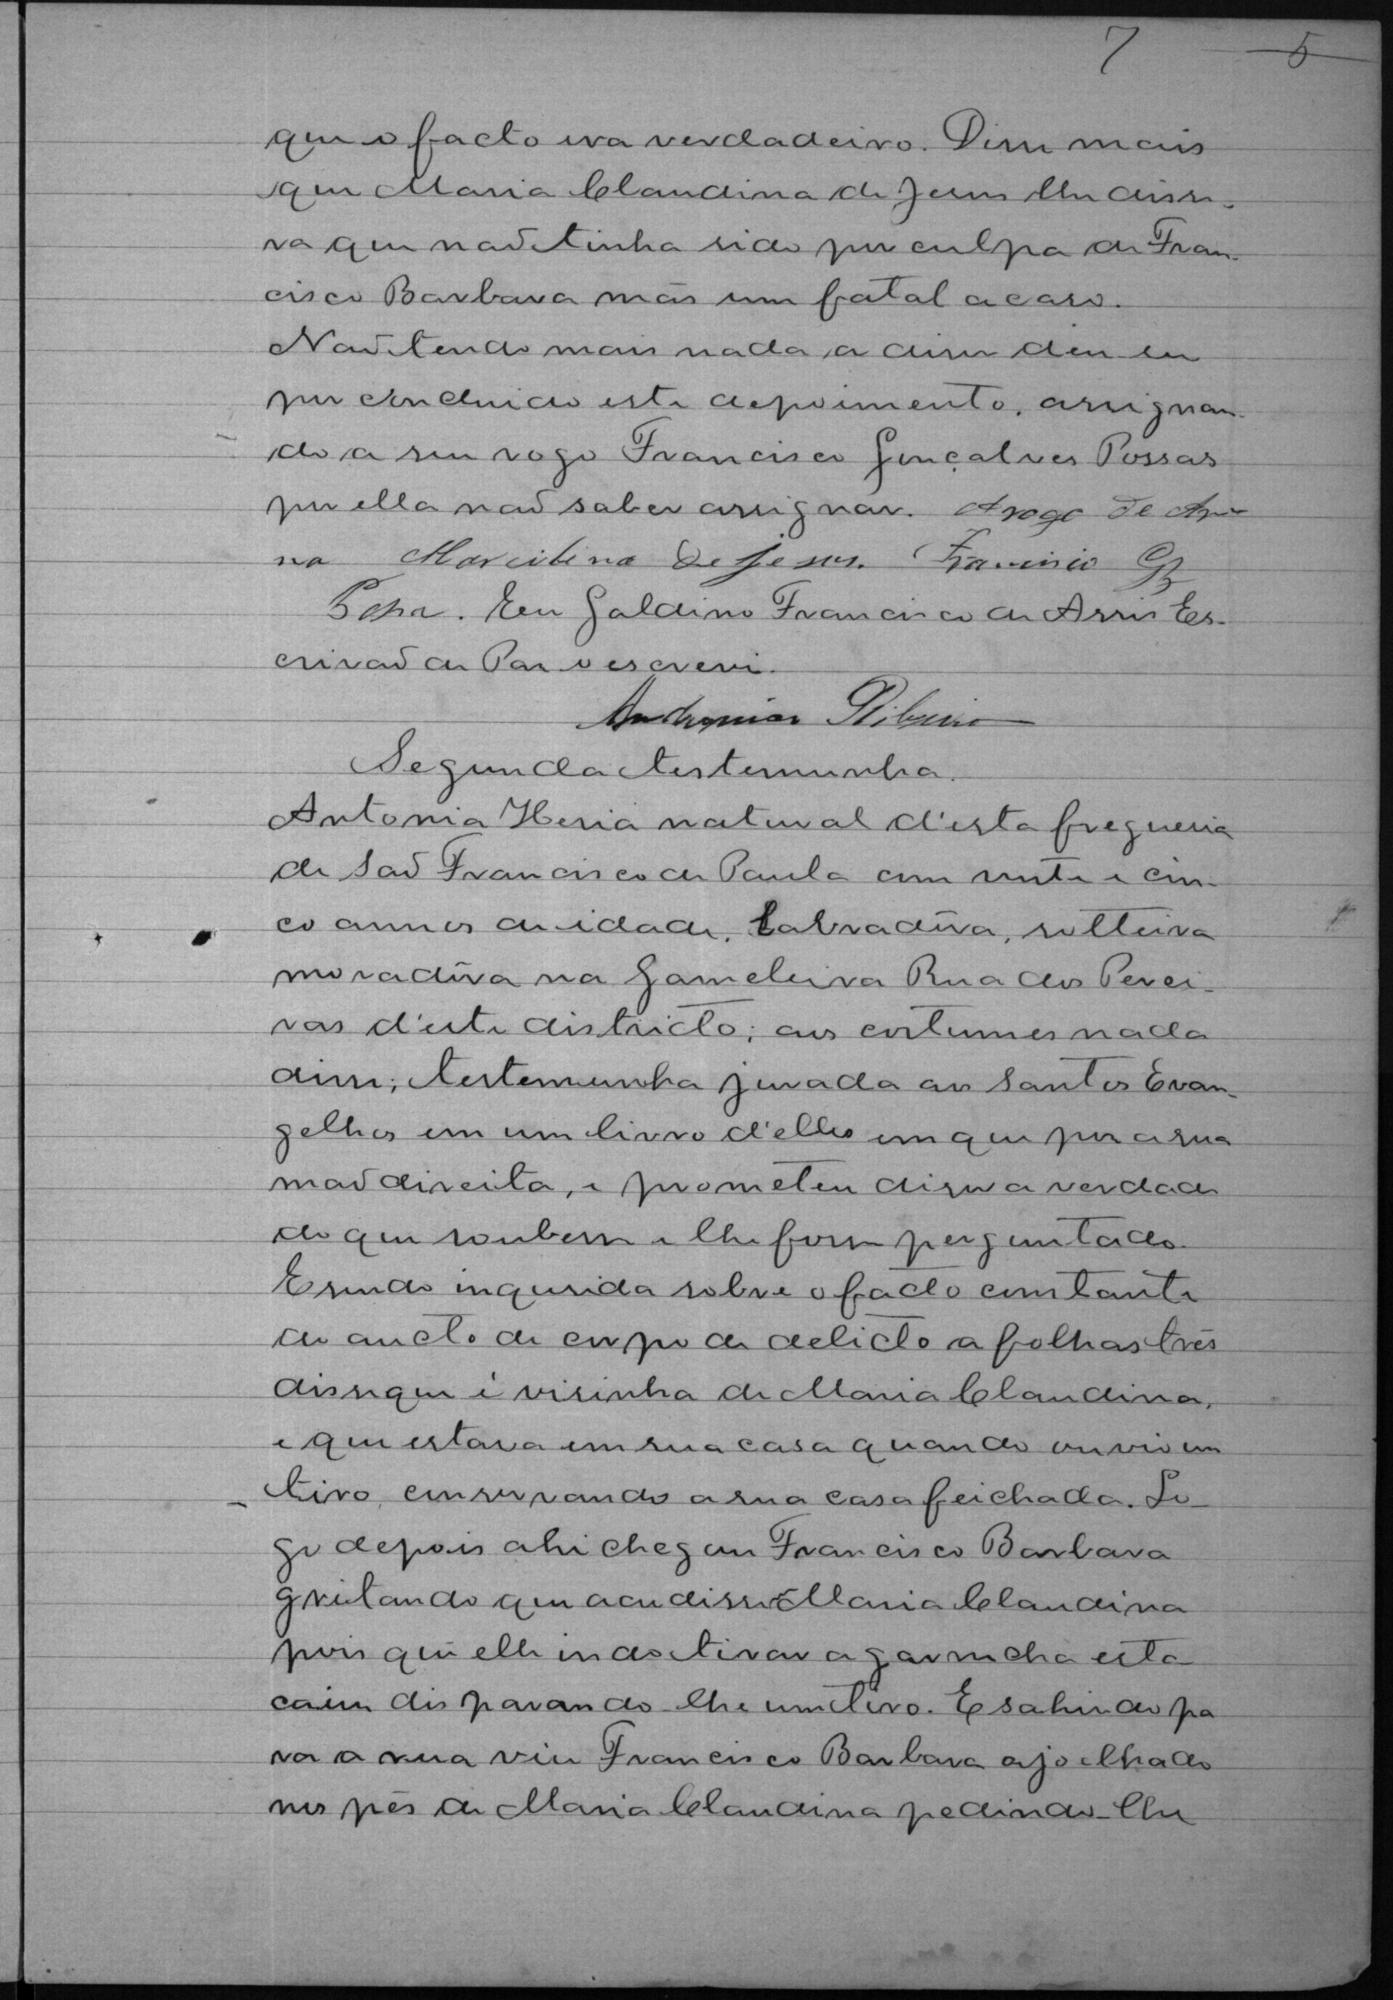 7 5
que o facto era verdadeiro. Disse mais
que Maria Claudina de Jesus lhe disse-
ra que naõ tinha sido por culpa de Fran-
cisco Barbara mas um fatal acaso.
Naõ tendo mais nada a diser deu-se
por concluido este depoimento, assignan-
do a seu rogo Francisco Gonçalves Possas
por ella naõ saber assignar. Arogo de An
na Marcilina de Jesus. Francisco Glz
Possa. Eeu Galdino Francisco de Assis Es-
crivaõ de Paz o escrevi.
Ribeiro
Segunda testemunha.
Antonia Heria natural d'esta freguesia
de Saõ Francisco de Paula com vinte e cin-
co annos de idade, Labradôra, solteira
moradôra na Gameleira Rua dos Perei-
ras d'este districto; aos costumes nada
disse; testemunha jurada aos Santos Evan-
gelhos em um livro d'elles em que pos a sua
maõ direita, e prometeu diser a verdade
do que soubesse e lhe fosse perguntado.
E sendo inquerida sobre o facto constante
do aucto de corpo de delicto a folhas três
disse que é visinha de Maria Claudina,
e que estava em sua casa quando ouvio um
tiro, conservando a sua casa feichada. Lo-
go depois ahi chegou Francisco Barbara
gritando que acudisse Maria Claudina
pois que elle indo tirar a garrucha esta
caiu disparando-lhe um tiro. E sahindo pa
ra a rua viu Francisco Barbara ajoelhado
nos pés de Maria Claudina pedindo-lhe